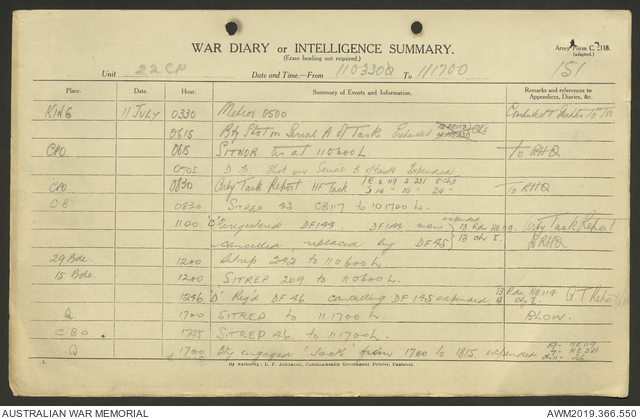 WAR DIARY or INTELLIGENCE SUMMARY.
(Erase heading not required.)
Army Form C. 2118.
(adapted.)
Unit 22 CP Date and Time—From 110330Q To 111700 151
Place. Date. Hour. Summary of Events and Information. Remarks and references to Appendices, Diaries, &c.
KING 11 JULY 0330 Meteor 0500
0615 Bty Shot on Serial A of Task. Expended
CPO 0615 SITNOR as at 110600L. To RHQ
0705 D Tp Shot on Serial B of task Expended
CPO 0830 Arty Task Report HF Task To RHQ
CB 0830 Sitrep 43 CB117 to 101700L.
1100 'C' registered DF144. DF146 now expended 13 Rds HE 119
cancelled, replaced by DF45 Arty Task Report RHQ
29 Bde. 1200 Sitrep 242 to 110600L
15 Bde. 1200 SITREP 209 to 110600L
1246 'D' Reg'd DF46 cancelling DF145 expended 13 Rds HE 119 A.T. Report
Q 1700 SITREP to 111700L BLOW.
CBO 1745 SITREP 46. to 111700L
Q 1700 Bty engaged 'Jack' from 1700 to 1815 expended
By Authority: L. F. Johnston, Commonwealth Government Printer, Canberra.
AUSTRALIAN WAR MEMORIAL
AWM2019.366.550